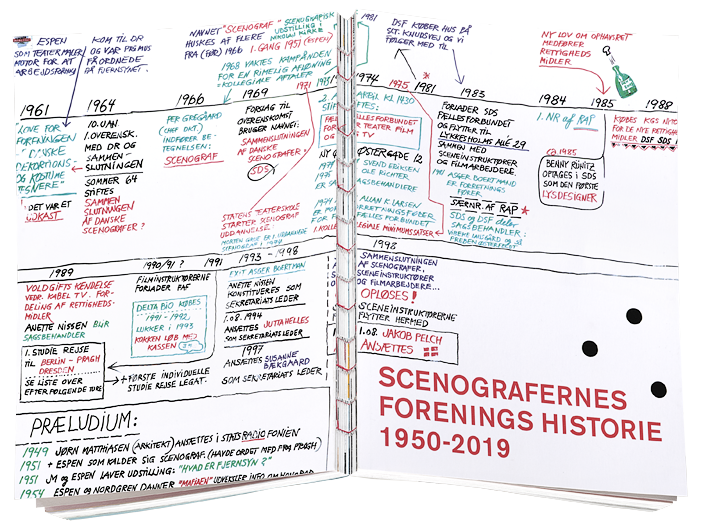 ESPEN
SOM TEATERMALER
MOTOR FOR AT
KOM TIL DR
OG VAR PRIMUS
FÅR ORDNEDE
PÅ FJERNSYNET.
NAVNET "SCENOGRAF"
HUSKES AF FLERE
FRA (FØR) 1966
SCENOGRAFISK
UDSTILLING I
NIKOLAJ KIRKE
1. GANG 1951 (ESPEN)
1968 VAKTES KAMPÅNDEN
FOR EN RIMELIG AFLØNNING
= KOLLEGIALE AFTALER
1961
LOVE FOR
FORENINGEN
"DANSKE
DEKORATIONS-
OG KOSTUME
TEGNERE"
DET VAR ET
1964
10. JAN.
1. OVERENSK.
MED DR OG
SAMMEN-
SLUTNINGEN
SOMMER 64
STIFTES
SAMMEN
SLUTNINGEN
AF DANSKE
SCENOGRAFER?
1966
PER GREGAARD
(CHEF DKT)
INDFØRER BE-
TEGNELSEN:
SCENOGRAF
1969
FORSLAG TIL
OVERENSKOMST
BRUGER NAVNET:
SAMMENSLUTNINGEN
AF DANSKE
SCENOGRAFER?
SDS
STATENS TEATERSKOLE
STARTER SCENOGRAF
UDDANNELSE.
1971
1973
1974
APRIL KL 1430
STIFTES:
FÆLLESFORBUNDET
FOR TEATER FILM
OG TV
ØSTERGADE 12
SVEND ERIKSEN
OLE RICHTER
SAGSBEHANDLERE
ALLAN K LARSEN
FORRETNINGSFØRER
FÆLLESFORBUNDET
KOLLEGIALE MINIMUMSATSER
1975
1981
1981
DSF KØBER HUS PÅ
SKT. KNUDSVEJ OG VI
FØLGER MED TIL
1983
FORLADER SDS
FÆLLESFORBUNDET
OG FLYTTER TIL
LYKKESHOLMS ALLÉ 29
SAMMEN MED
SCENEINSTRUKTØRER
OG FILMARBEJDERE.
1981 ASGER BOERTMAND
ER FORRETNINGS
FØRER.
SÆRNR. AF RAP
SDS OG DSF deler
SAGSBEHANDLER:
1984
1. NR af RAP
NY LOV OM OPHAVSRET
MEDFØRER
RETTIGHEDS
MIDLER
1985
ca 1985
BENNY RÜNITZ
OPTAGES I SDS
SOM DEN FØRSTE
LYSDESIGNER
1988
KØBES KGS NYTO
FOR DE NYE RETTIGH
MIDLER DSF SDS
1989
VOLDGIFTS KENDELSE
VEDR. KABEL TV. FOR-
DELING AF RETTIGHEDS-
MIDLER
ANETTE NISSEN BLIR
SAGSBEHANDLER
1. STUDIE REJSE
TIL BERLIN - PRAGH
DRESDEN
SE LISTE OVER
EFTERFØLGENDE TURE
1990/91?
FILMINSTRUKTØRERNE
FORLADER FAF
DELTA BIO KØBES
1991 - 1992
LUKKER I 1993
KOKKEN LØB MED
KASSEN
+ FØRSTE INDIVIDUELLE
STUDIE REJSE LEGAT.
1991
1993 - 1998
EXIT ASGER BOERTMAN
ANETTE NISSEN
KONSTITUERES SOM
SEKRETARIATS LEDER
1.08.1994
ANSÆTTES JUTTA HELLES
SOM SEKRETARIATSLEDER
1997
ANSÆTTES SUSANNE
BÆKGAARD
SOM SEKRETARIATS LEDER
1998
SAMMENSLUTNINGEN
AF SCENOGRAFER,
SCENEINSTRUKTØRER
OG FILMARBEJDERE...
OPLØSES!
SCENEINSTRUKTØRERNE
FLYTTER HERMED
1.08. JAKOB PELCH
ANSÆTTES
PRÆLUDIUM:
1949 JØRN MATTHIASEN (ARKITEKT) ANSÆTTES I STATSRADIOFONIEN
1951 + ESPEN SOM KALDER SIG SCENOGRAF. (HAVDE ORDET MED FRA PRAGH)
1951 JM og ESPEN LAVER UDSTILLING: "HVAD ER FJERNSYN?"
1954 ESPEN OG NORDGREN DANNER "MAFIAEN" UDVEKSLER INFO OM HONORAR
SCENOGRAFERNES
FORENINGS HISTORIE
1950-2019